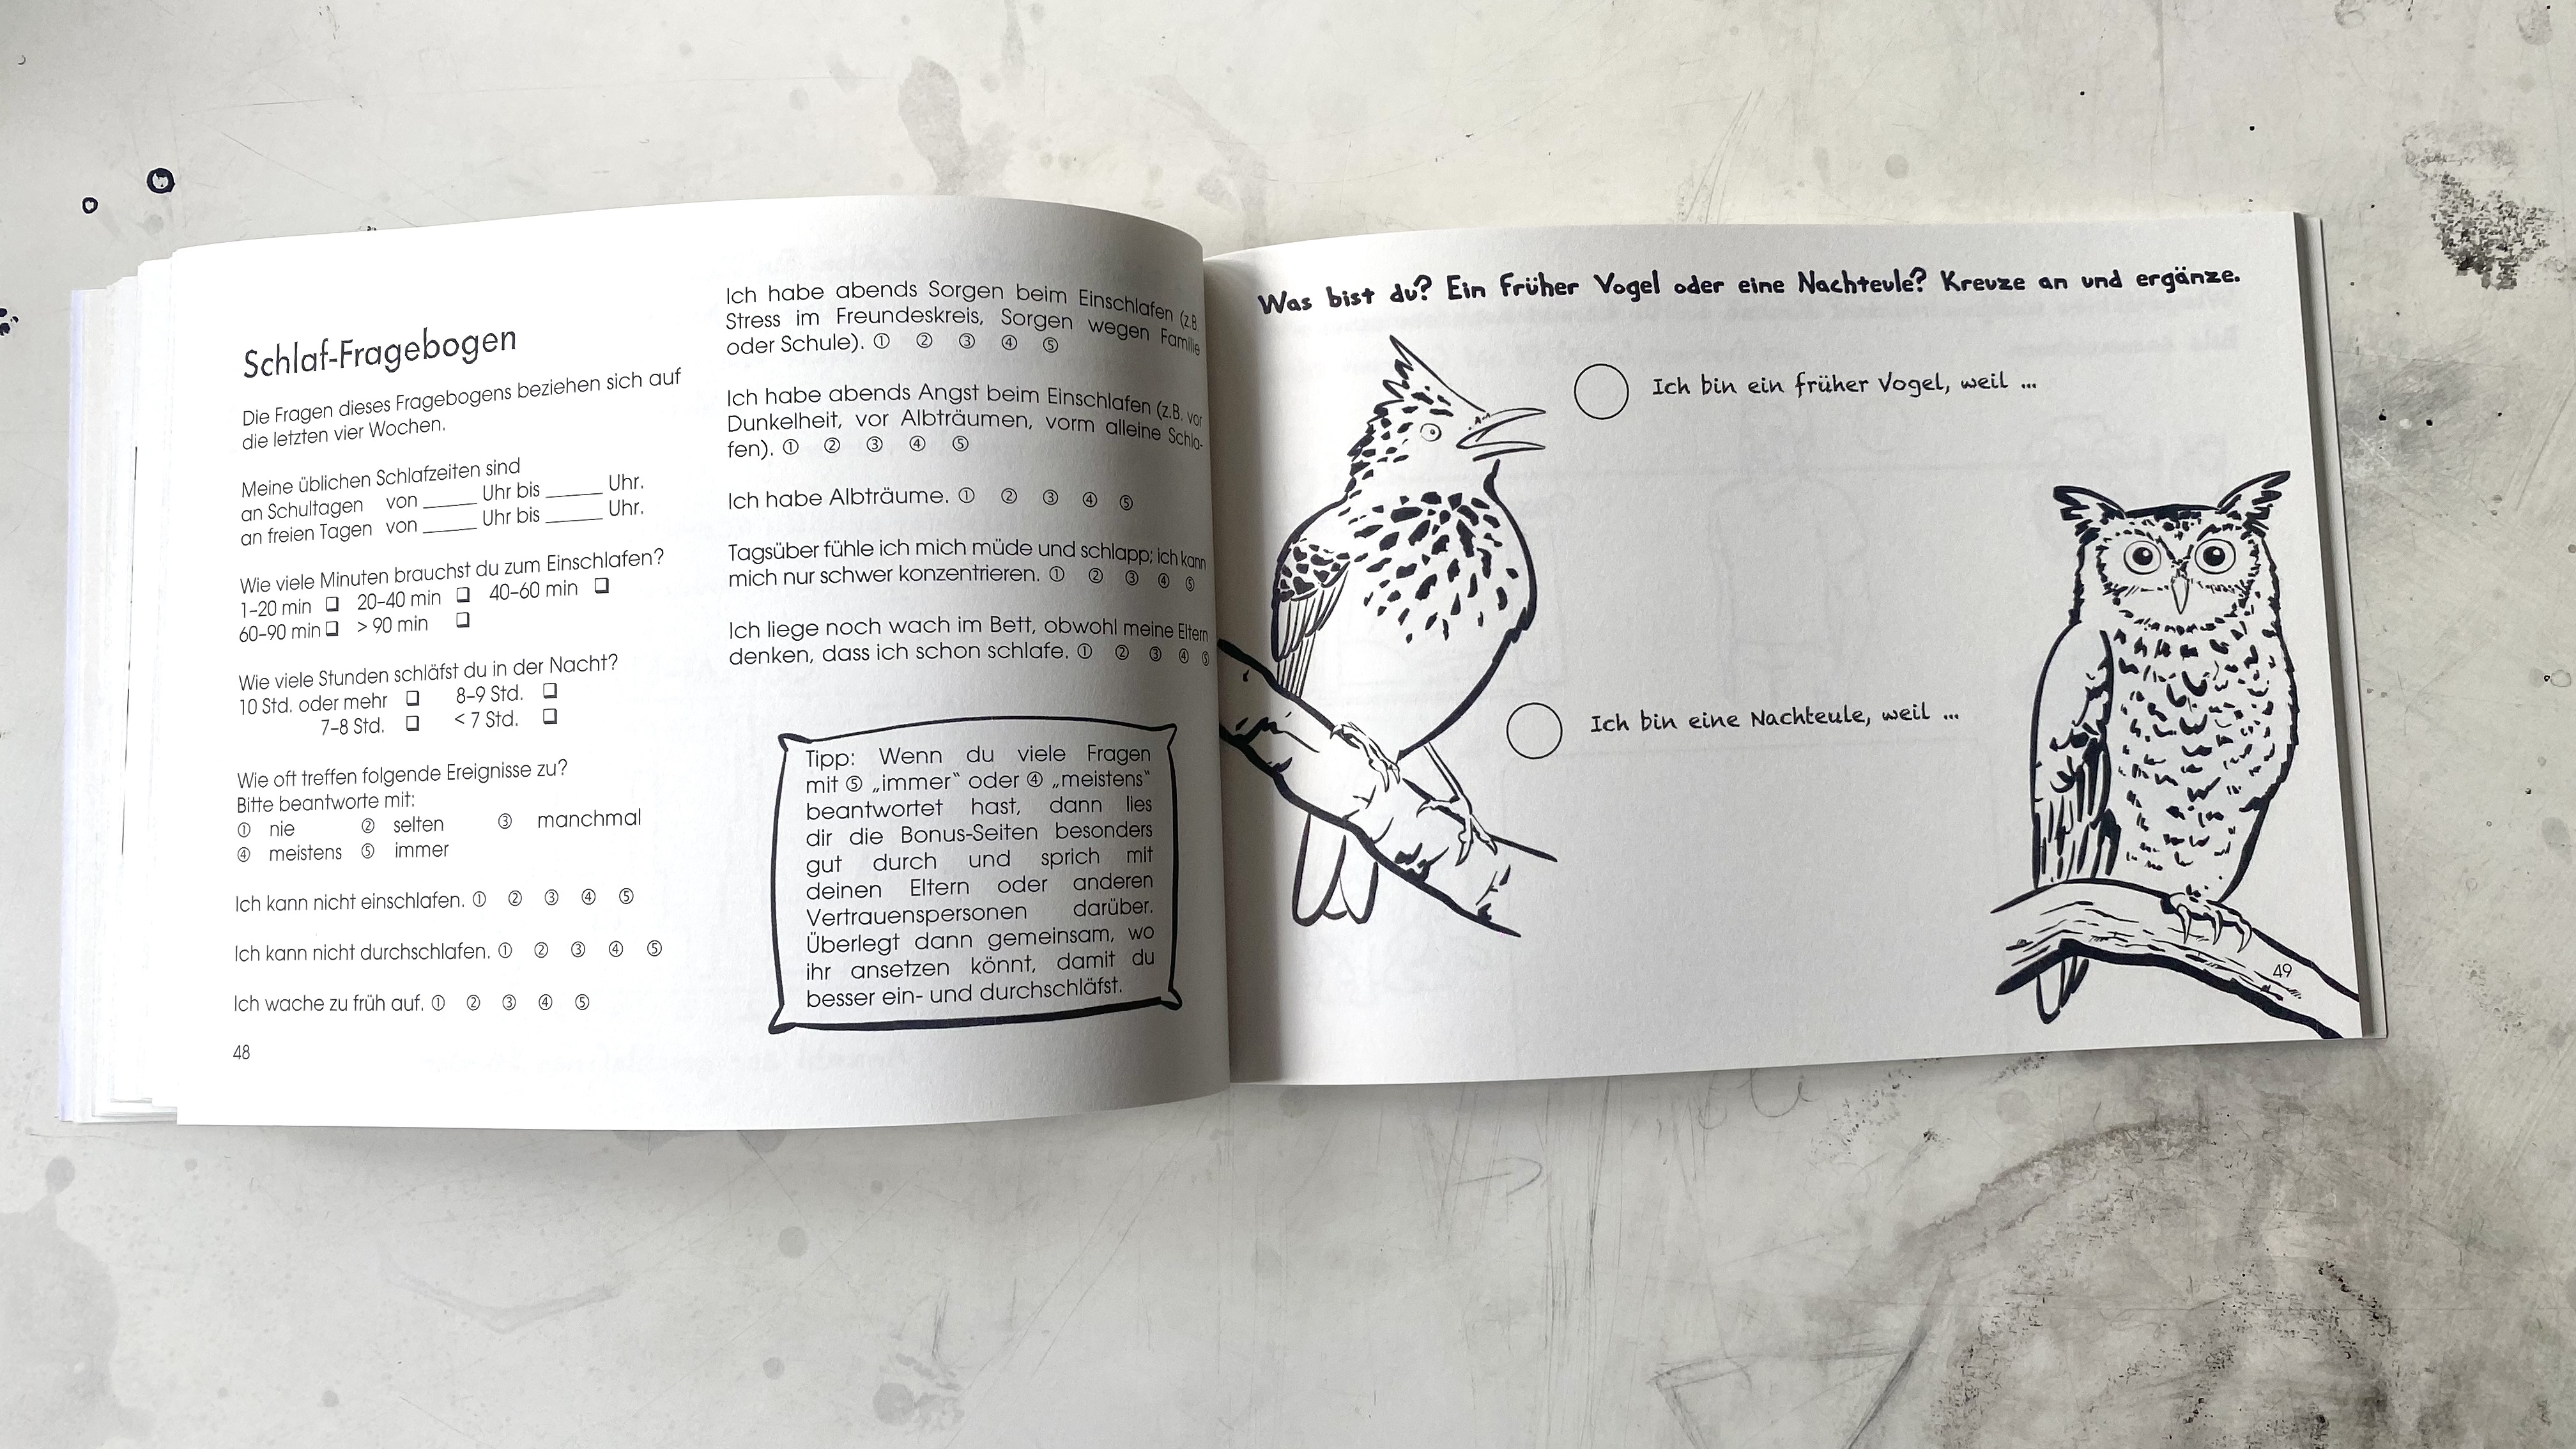 Schlaf-Fragebogen
Die Fragen dieses Fragebogens beziehen sich auf
die letzten vier Wochen.
Meine üblichen Schlafzeiten sind
an Schultagen von _____ Uhr bis _____ Uhr.
an freien Tagen von _____ Uhr bis _____ Uhr.
Wie viele Minuten brauchst du zum Einschlafen?
1–20 min ❑ 20–40 min ❑ 40–60 min ❑
60–90 min ❑ > 90 min ❑
Wie viele Stunden schläfst du in der Nacht?
10 Std. oder mehr ❑ 8–9 Std. ❑
7–8 Std. ❑ < 7 Std. ❑
Wie oft treffen folgende Ereignisse zu?
Bitte beantworte mit:
① nie ② selten ③ manchmal
④ meistens ⑤ immer
Ich kann nicht einschlafen. ① ② ③ ④ ⑤
Ich kann nicht durchschlafen. ① ② ③ ④ ⑤
Ich wache zu früh auf. ① ② ③ ④ ⑤
48
Ich habe abends Sorgen beim Einschlafen (z.B.
Stress im Freundeskreis, Sorgen wegen Familie
oder Schule). ① ② ③ ④ ⑤
Ich habe abends Angst beim Einschlafen (z.B. vor
Dunkelheit, vor Albträumen, vorm alleine Schla-
fen). ① ② ③ ④ ⑤
Ich habe Albträume. ① ② ③ ④ ⑤
Tagsüber fühle ich mich müde und schlapp; ich kann
mich nur schwer konzentrieren. ① ② ③ ④ ⑤
Ich liege noch wach im Bett, obwohl meine Eltern
denken, dass ich schon schlafe. ① ② ③ ④ ⑤
Tipp: Wenn du viele Fragen
mit ⑤ „immer“ oder ④ „meistens“
beantwortet hast, dann lies
dir die Bonus-Seiten besonders
gut durch und sprich mit
deinen Eltern oder anderen
Vertrauenspersonen darüber.
Überlegt dann gemeinsam, wo
ihr ansetzen könnt, damit du
besser ein- und durchschläfst.
Was bist du? Ein früher Vogel oder eine Nachteule? Kreuze an und ergänze.
Ich bin ein früher Vogel, weil ...
Ich bin eine Nachteule, weil ...
49